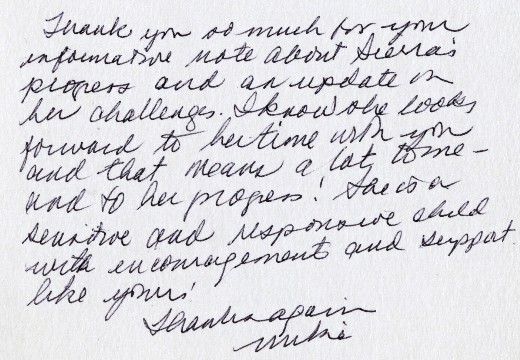 Thank you so much for your
informative note about Sierra's
progress and an update on
her challenges. I know she looks
forward to her time with you
and that means a lot to me -
and to her progress! She is a
sensitive and responsive child
with encouragement and support
like yours!
Thanks again